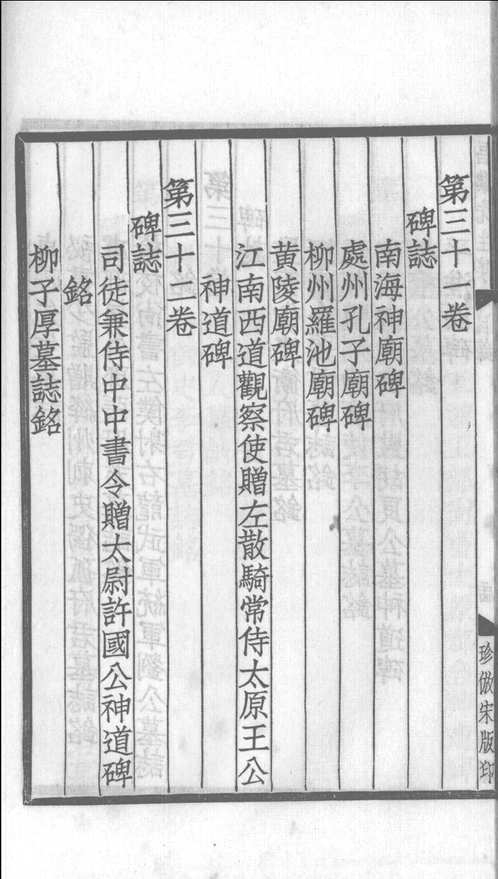 第三十一卷
碑誌
南海神廟碑
處州孔子廟碑
柳州羅池廟碑
黃陵廟碑
江南西道觀察使贈左散騎常侍太原王公
神道碑
第三十二卷
碑誌
司徒兼侍中中書令贈太尉許國公神道碑
銘
柳子厚墓誌銘
珍倣宋版印